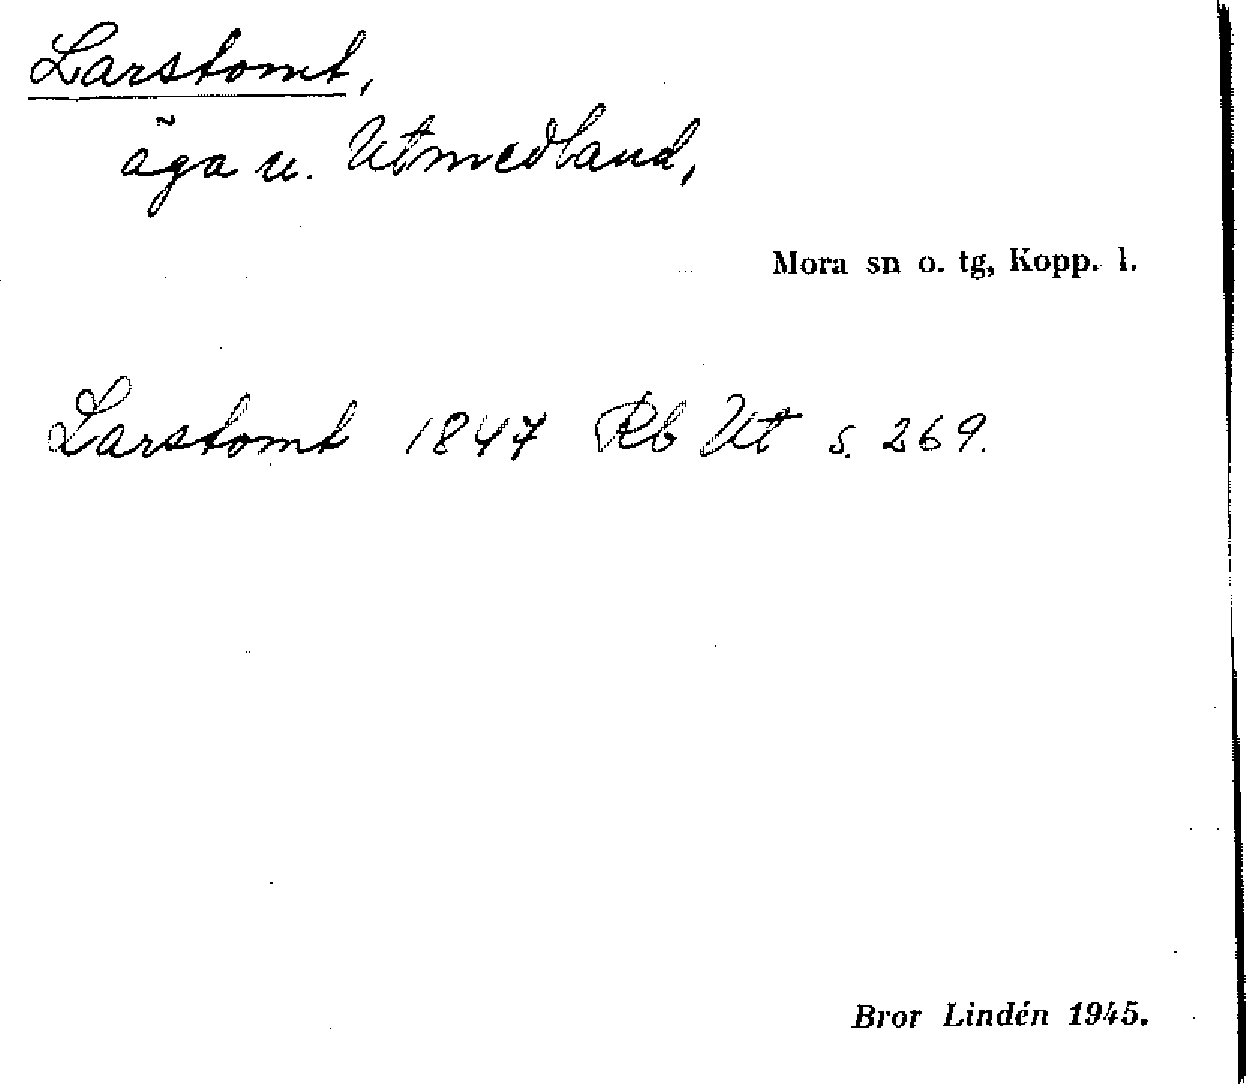 Larstomt,
äga u. Utmedland,
Mora sn o. tg, Kopp. l.
Larstomt 1847 Rb Ut s. 269.
Bror Lindén 1945.